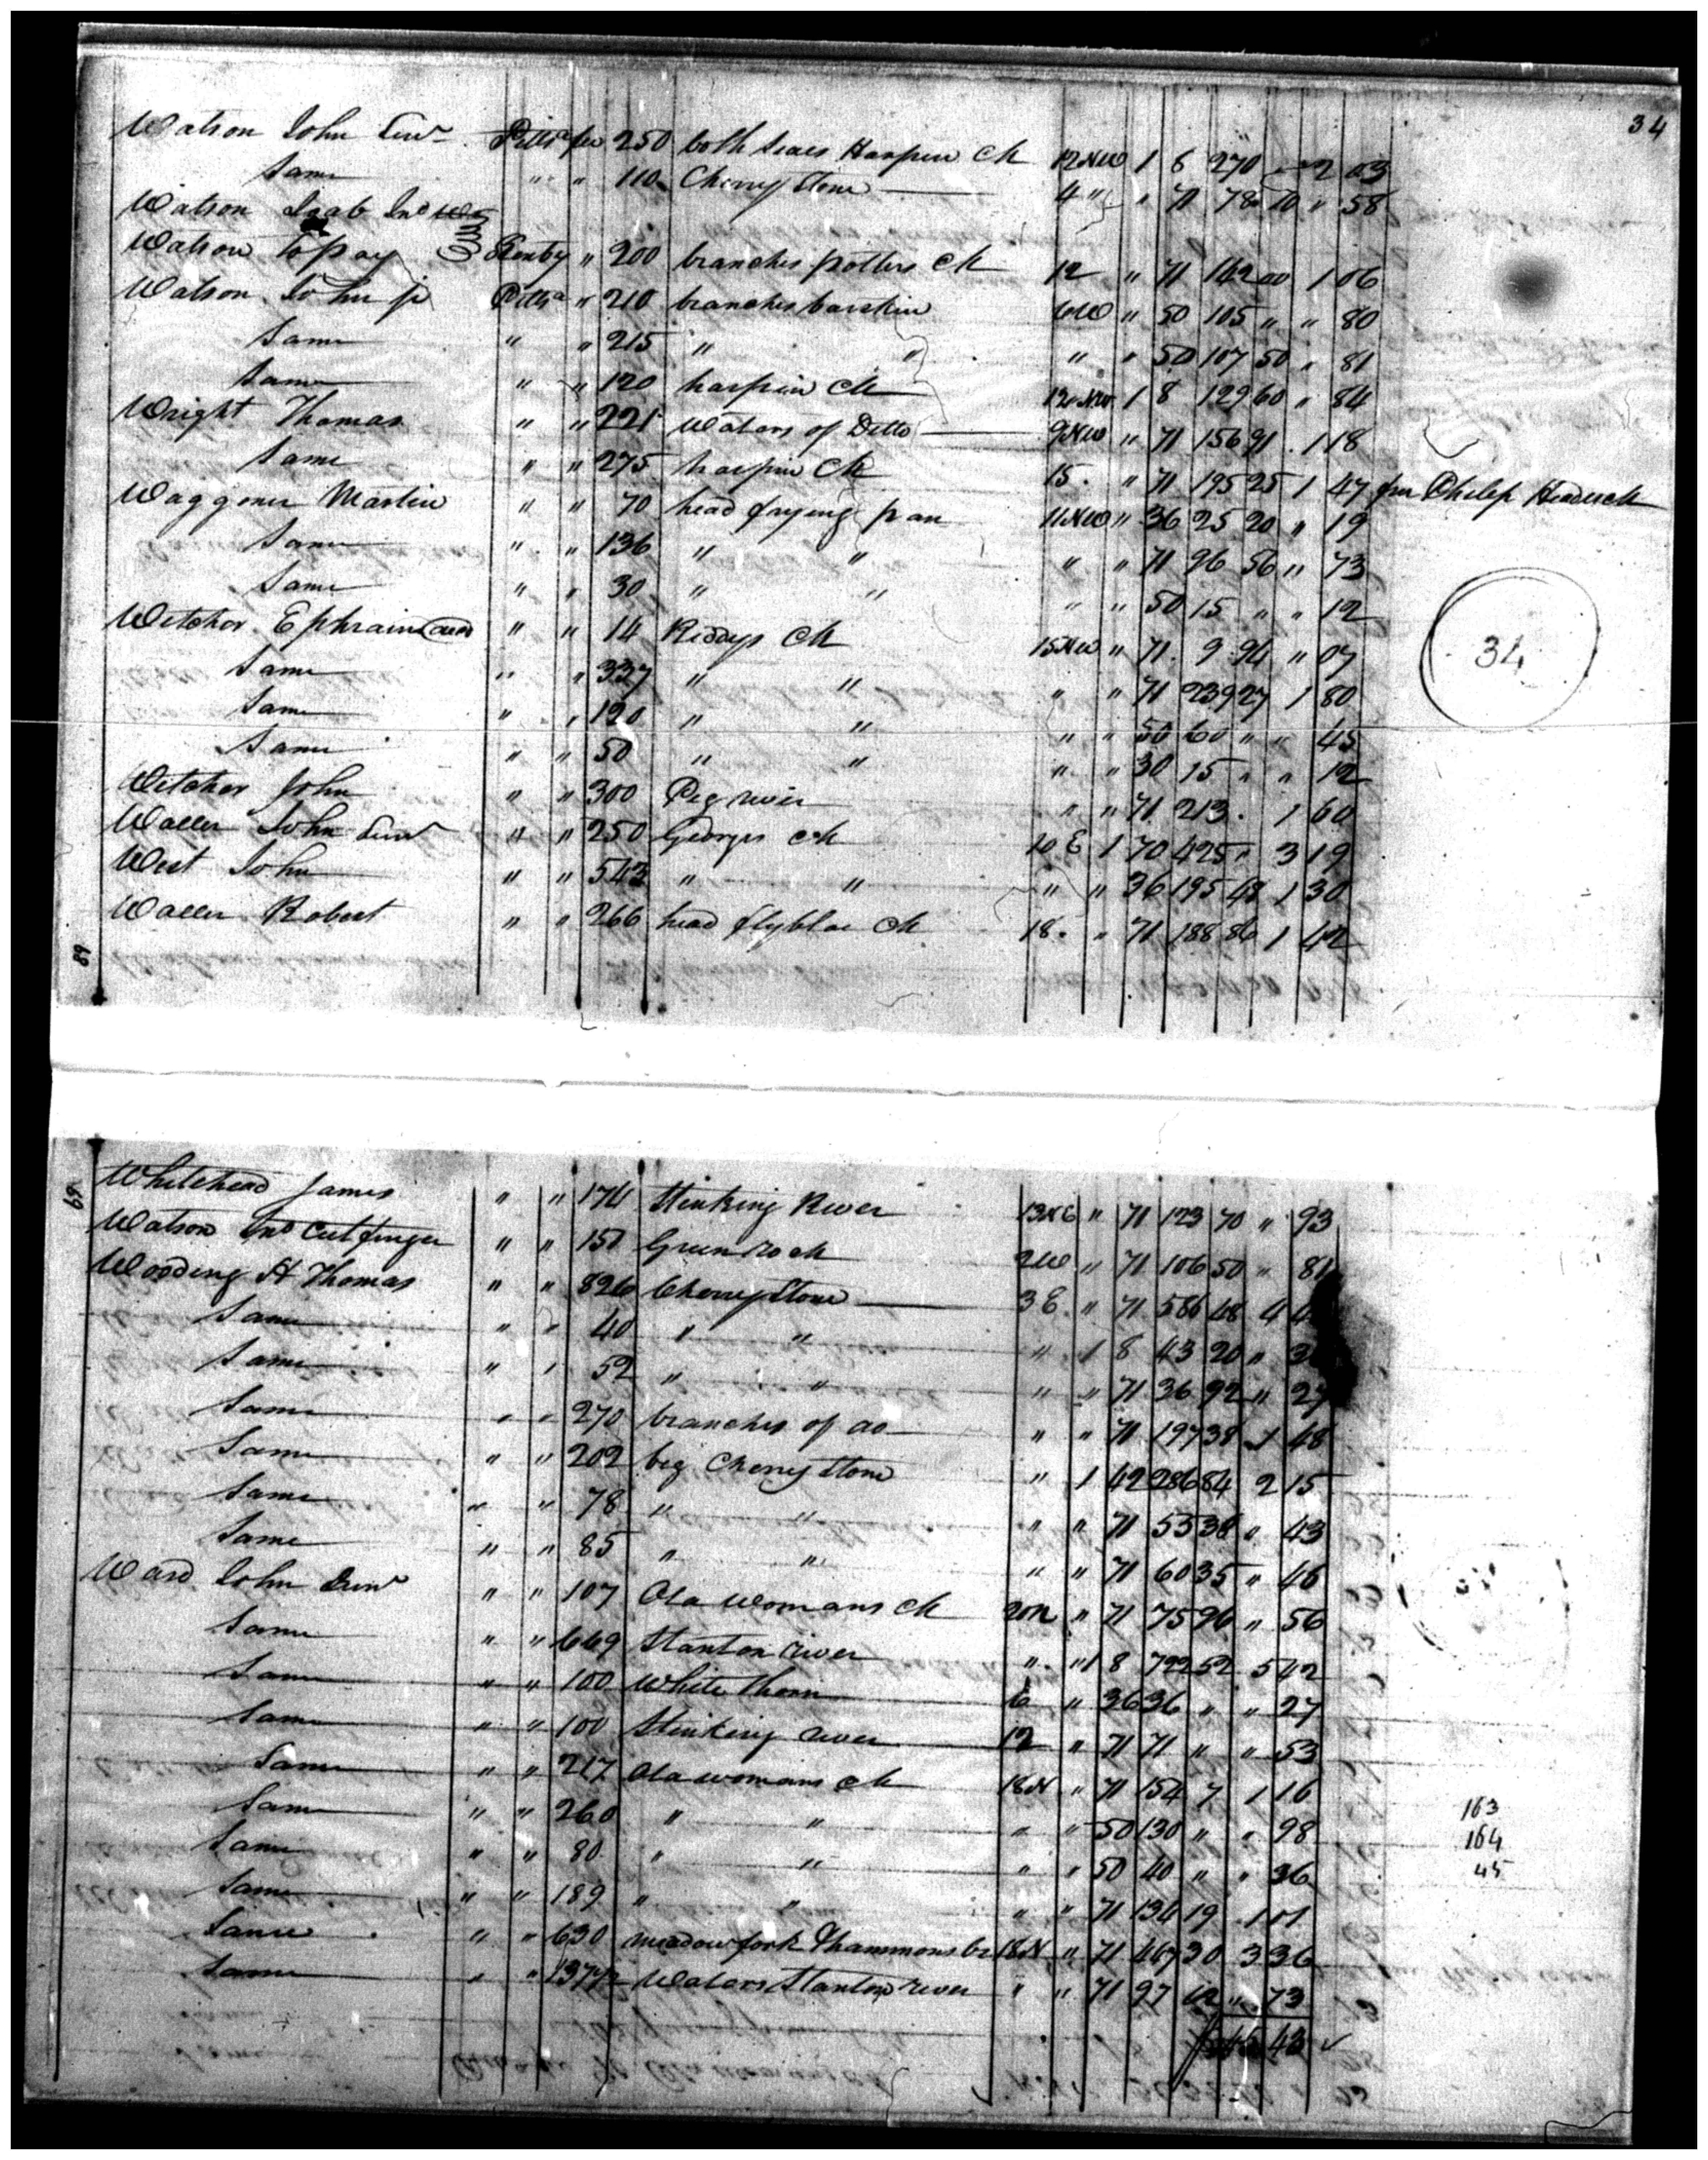 34
Watson John Senr Pittsa fee 250 both sides Harpin Ck 12 NW 1 8 270 " 2 03
Same " " 110 Cherry Stone 4 " " 71 78 10 " 58
Watson Jno
Watson to pay " 200 branches potters Ck 12 " 71 142 00 1 06
Watson John jr Pittsa " 210 branches barskin 6 W " 50 105 " " 80
Same " " 215 " " " " 50 107 50 " 81
Same " " 120 harpin Ck 12 NW 1 8 129 60 " 84
Wright Thomas " " 221 Waters of Ditto 9 NW " 71 156 91 1 18
Same " " 275 harpin Ck 15 " 71 195 25 1 47 fm Philip
Waggoner Martin " " 70 head frying pan 11 NW " 36 25 20 " 19
Same " " 136 " " " " 71 96 56 " 73
Same " " 30 " " " " 50 15 " " 12
Witcher Ephraim " " 14 Reddys Ck 15 NW " 71 9 94 " 07
34
Same " " 337 " " " " 71 239 27 1 80
Same " " 120 " " " " 50 60 " " 45
Same " " 50 " " " " 30 15 " " 12
Witcher John " " 300 Pig river " " 71 213 1 60
Waller John Senr " " 250 Georges ck 20 E 1 70 425 " 3 19
West John " " 543 " " " " 36 195 48 1 30
Waller Robert " " 266 head flyblow Ck 18 " 71 188 86 1 42
89
69
Whitehead James " " 174 Stinking River 13 NE " 71 123 70 " 93
Watson Jno Cutfinger " " 150 Green rock 2 W " 71 106 50 " 81
Wooding H Thomas " " 826 Cherrystone 3 E " 71 586 48 4
Same " " 40 " " " 1 8 43 20 "
Same " " 52 " " " " 71 36 92 " 27
Same " " 270 branches of do " " 71 197 38 1 48
Same " " 202 big Cherrystone " 1 42 286 84 2 15
Same " " 78 " " " " 71 55 38 " 43
Same " " 85 " " " " 71 60 35 " 46
Ward John Senr " " 107 Old Womans Ck 20 N " 71 75 96 " 56
Same " " 669 Stanton river " 1 8 722 52 5 42
Same " " 100 White Thorn 6 " 36 36 " " 27
Same " " 100 Stinking river 12 " 71 71 " " 53
Same " " 217 Old womans ck 18 N " 71 154 7 1 16
Same " " 260 " " " " 50 130 " " 98
Same " " 80 " " " " 50 40 " " 36
Same " " 189 " " " " 71 134 19 1 01
Same " " 630 meadow fork Thammons br 18 N " 71 447 30 3 36
Same " " 137 1/2 Waters Stanton river " " 71 97 62 " 73
45 43
163
164
45